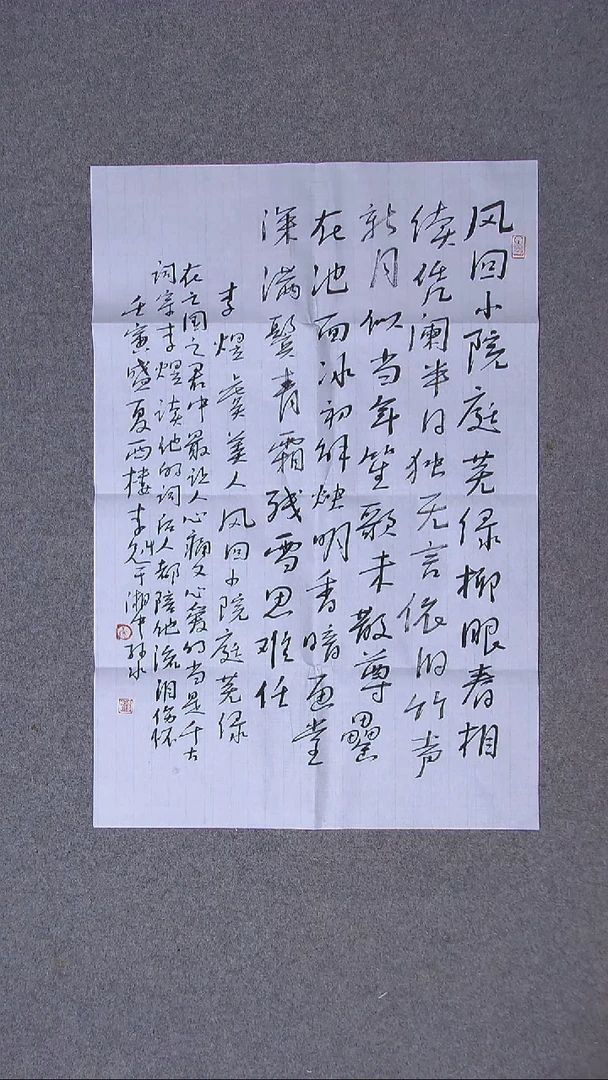 风回小院庭芜绿柳眼春相
续凭阑半日独无言依旧竹声
新月似当年笙歌未散尊罍
在池面冰初解烛明香暗画堂
深满鬓青霜残雪思难任
李煜虞美人风回小院庭芜绿
在亡国之君中最让人心痛又心爱的当是千古
词宗李煜读他的词后人都陪他流泪伤怀
壬寅盛夏西楼李于湘中水